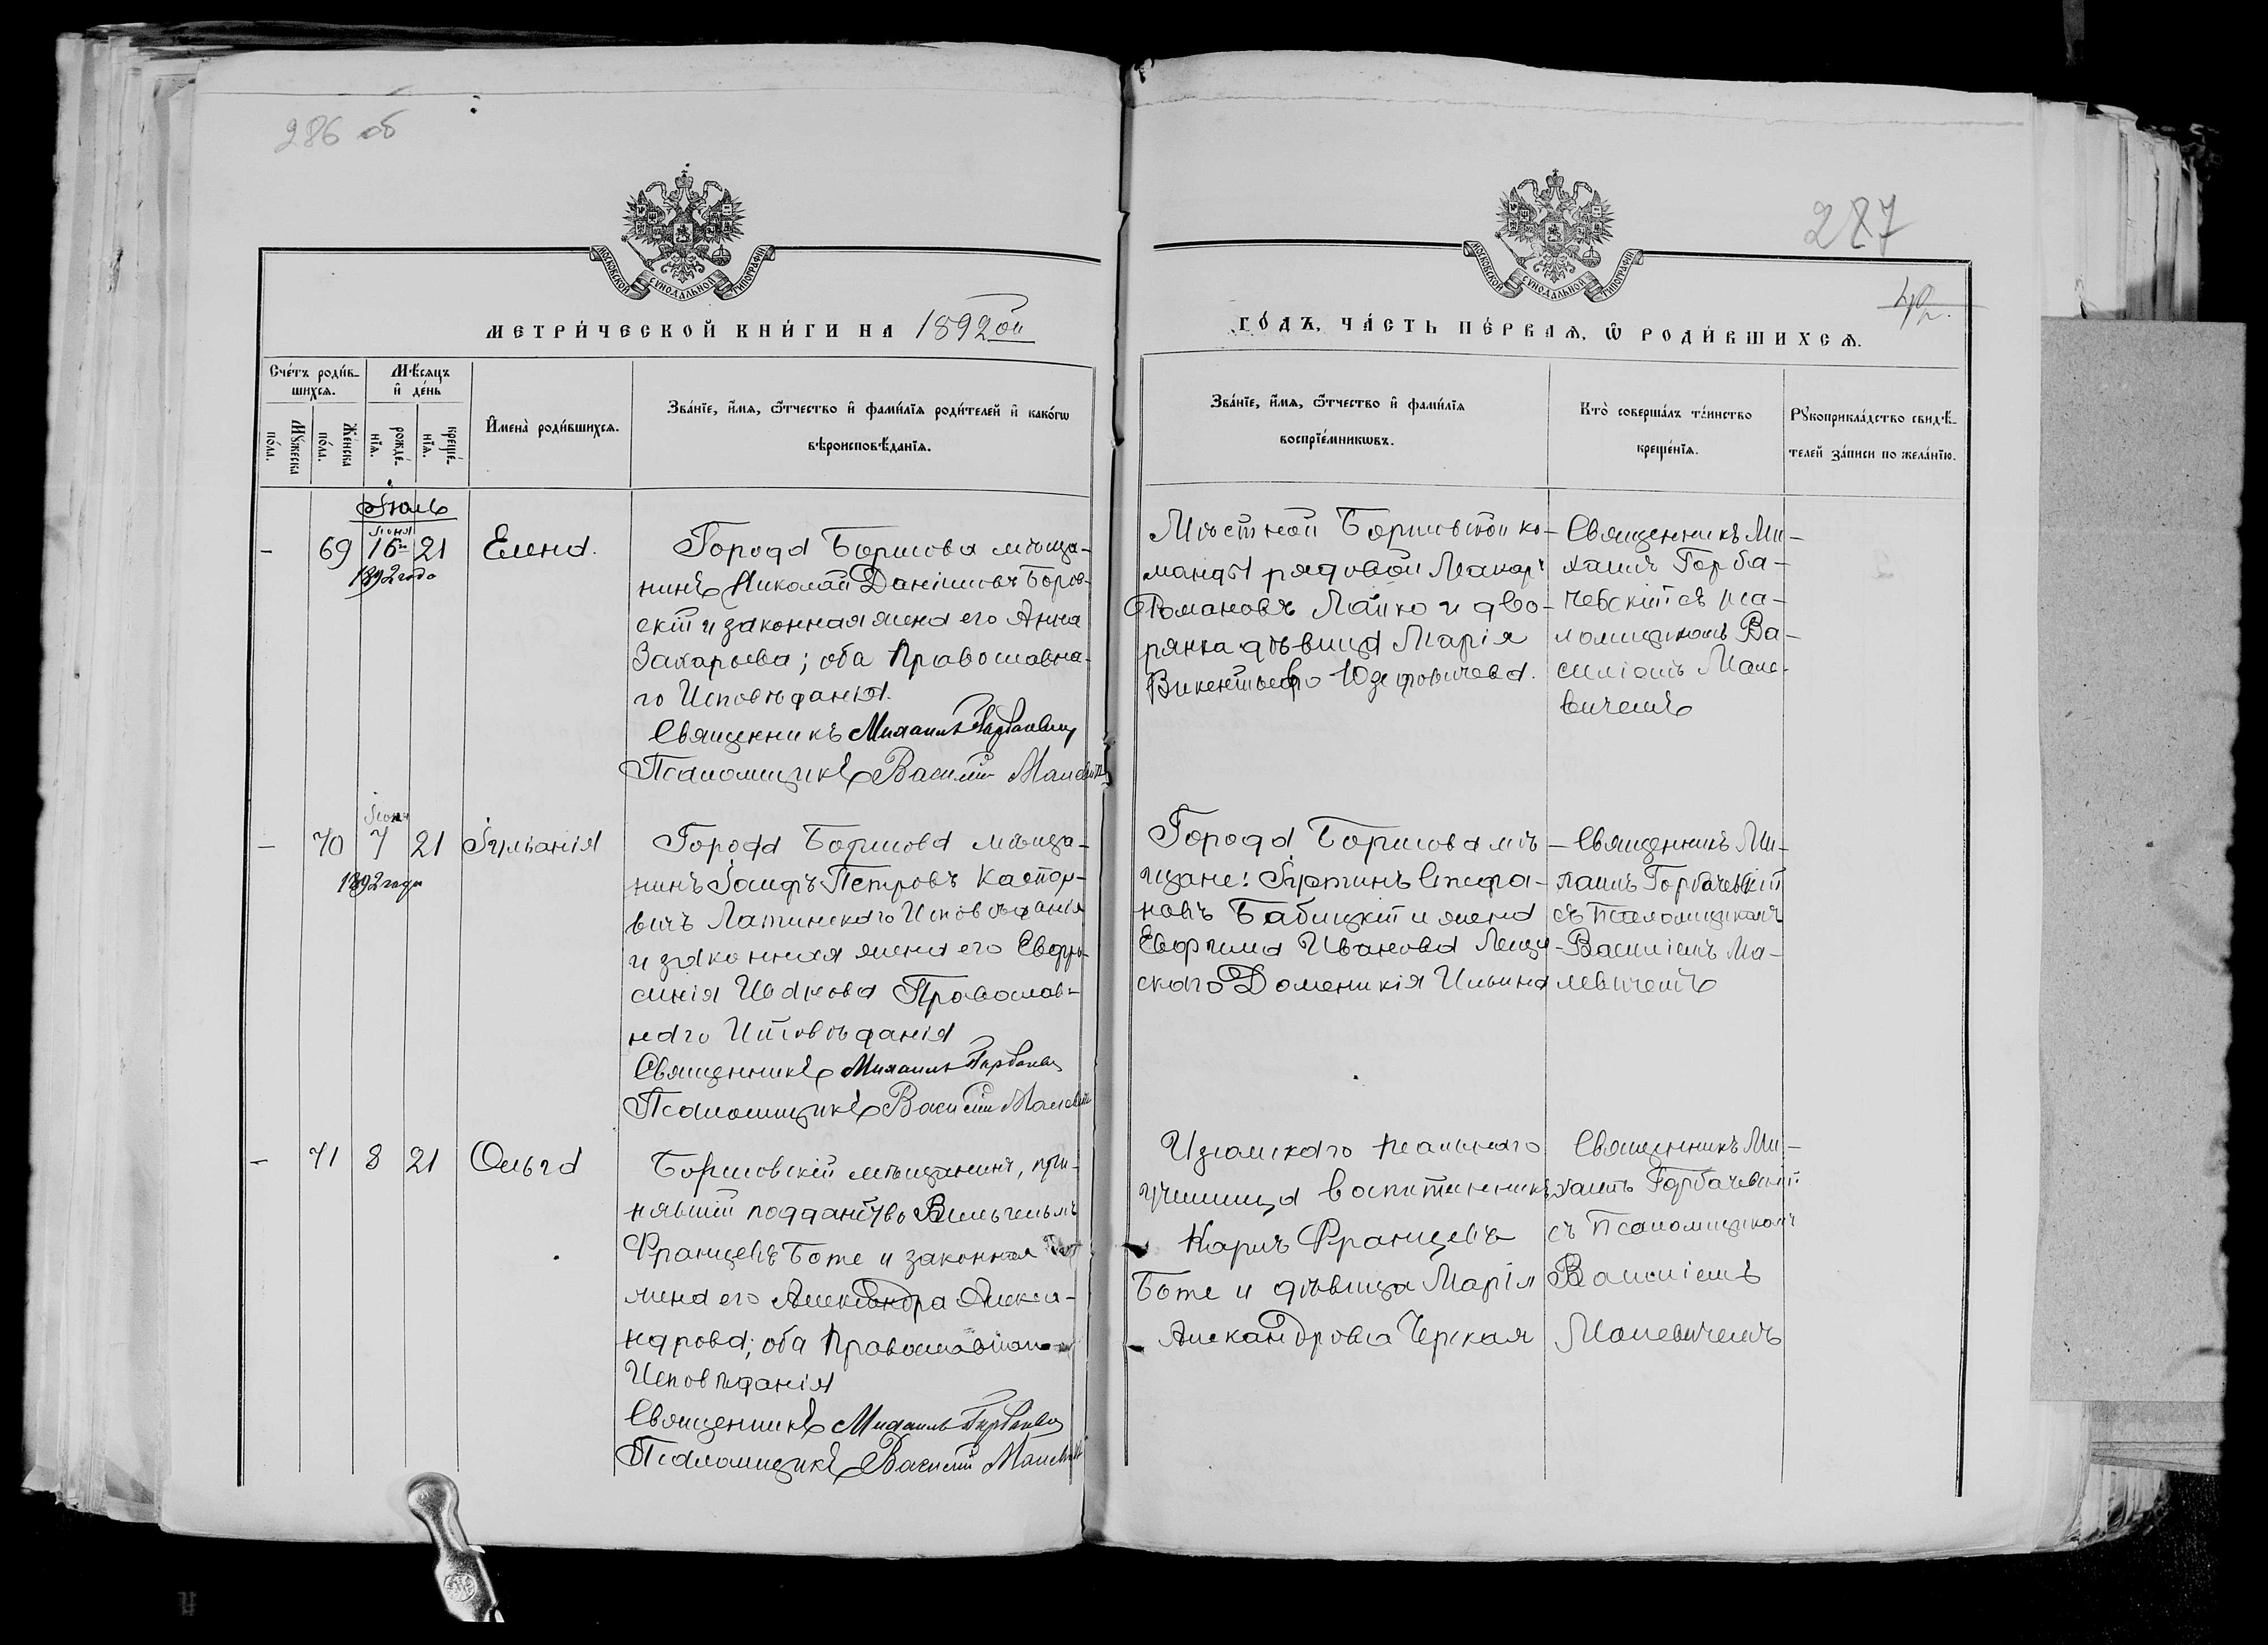 286 об
287
42.
МОСКОВСКОЙ СѴНОДАЛЬНОЙ ТИПОГРАФІИ
МОСКОВСКОЙ СѴНОДАЛЬНОЙ ТИПОГРАФІИ
МЕТРИ́ЧЕСКОЙ КНИ́ГИ НА 1892ой
ГО́ДЪ, ЧА́СТЬ ПЕ́РВАѦ, Ѡ҆ РОДИ́ВШИХСѦ.
Сче́тъ роди́в-
шихсѧ.
Мꙋ́жеска
по́ла.
Же́нска
по́ла.
Мѣ́сѧцъ
и҆ де́нь
рожде́-
нїѧ.
креще́-
нїѧ.
И҆мена̀ роди́вшихсѧ.
Зва́нїе, и҆́мѧ, ѻ҆́тчество и҆ фами́лїѧ роди́телей и҆ како́гѡ
вѣроисповѣ́данїѧ.
Зва́нїе, и҆́мѧ, ѻ҆́тчество и҆ фами́лїѧ
воспрїе́мникѡвъ.
Кто̀ соверша́лъ та́инство
креще́нїѧ.
Рꙋкоприкла́дство свидѣ́-
телей за́писи по жела́нїю.
Іюль
Іюня
- 69 16го 21 Елена.
1892 года
Города Борисова мѣща-
нинъ Николай Даніиловъ Боров-
скій и законная жена его Анна
Захарьева; оба Православна-
го Исповѣданія.
Священникъ Михаилъ Горбачевскій
Псаломщикъ Василій Малевичъ
Мѣстной Борисовской ко-
манды рядовой Макарій
Романовъ Лайко и дво-
рянка дѣвица Марія
Викентьева Юзефовичева.
Священникъ Ми-
хаилъ Горба-
чевскій съ пса-
ломщикомъ Ва-
силіемъ Мале-
вичемъ
Іюня
- 70 7 21 Іуліанія
1892 года
Города Борисова мѣща-
нинъ Іосифъ Петровъ Каспор-
вичъ Латинскаго Исповѣданія
и законная жена его Евфро-
синія Иванова Православ-
наго Исповѣданія
Священникъ Михаилъ Горбачевскій
Псаломщикъ Василій Малевичъ
Города Борисова мѣ-
щане: Іустинъ Стефа-
новъ Бабицкій и жена
Иванова
Доменикія Ильина
Священникъ Ми-
хаилъ Горбачевскій
съ Псаломщикомъ
Василіемъ Ма-
левичемъ
- 71 8 21 Ольга
Борисовскій мѣщанинъ, при-
нявшій подданство Вильгельмъ
Францевъ Боте и законная
жена его Александра Алекса-
ндрова; оба Православнаго
Исповѣданія
Священникъ Михаилъ Горбачевскій
Псаломщикъ Василій Малевичъ
Изюмскаго реальнаго
училища воспитанникъ
Карлъ Францевъ
Боте и дѣвица Марія
Александровна Черская
Священникъ Ми-
хаилъ Горбачевскій
съ Псаломщикомъ
Василіемъ
Малевичемъ